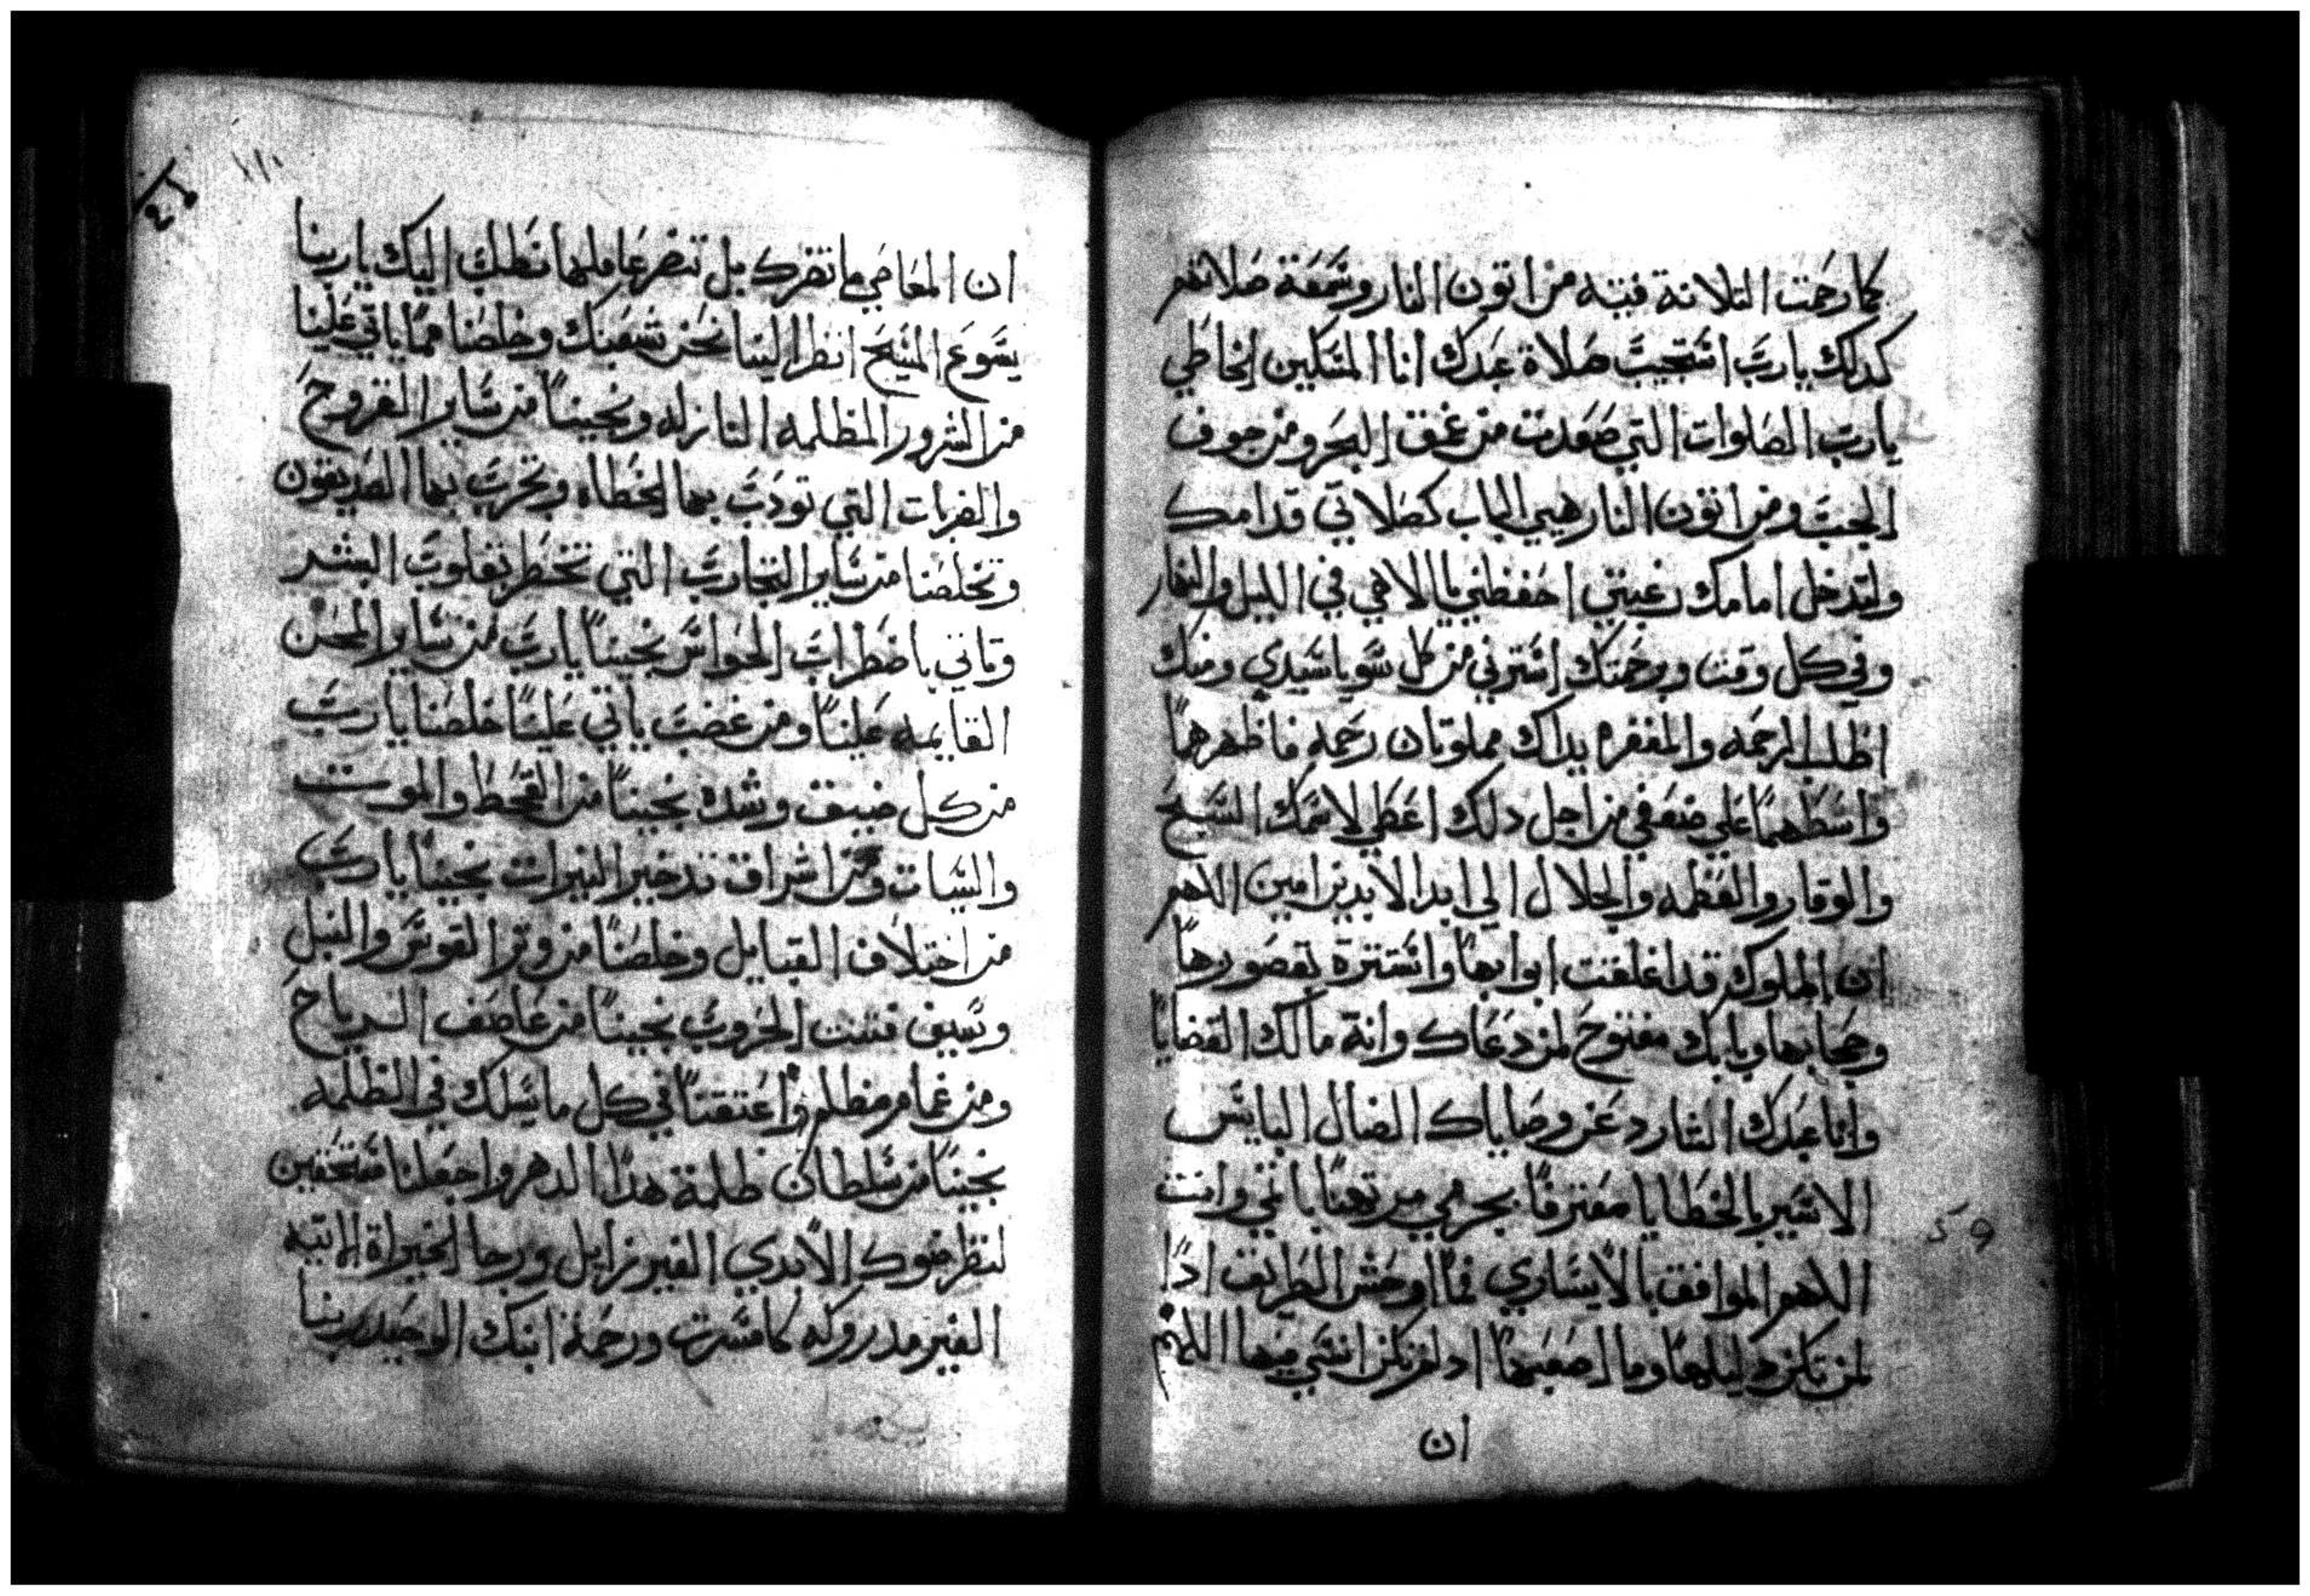 كما رحمت التلاتة فتيه من اتون النار وسمعة صلاتهم
كدلك يارب استجيب صلاة عبدك انا المسكين الخاطي
يارب الصلوات التي صعدت من عمق البحر ومن جوف
الجب ومن اتون النار هيي الباب كصلاتي قدامك
ولتدخل امامك رغبتي احفظني يا الاهي في الليل والنهار
وفي كل وقت وبرحمتك استرني من كل سو ياسيدي ومنك
اطلب الرحمه والمغفره يداك مملوتان رحمه فاظهرهما
وابسطهما علي ضعفي من اجل دلك اعطي لاسمك التسبيح
والوقار والعظمه والجلال الي ابد الابدين امين اللهم
ان الملوك قد اغلقت ابوابها واستترة بقصورها
وحجابها وبابك مفتوح لمن دعاك وانة مالك القضايا
وانا عبدك الشارد عن وصاياك الضال البايس
الاسير بالخطايا معترفا بجرمي مرتهنا باتمي وانت
اللهم الموافق بالايساري فما اوحش الطريق ادا
لمن تكن دليلها وما اصعبها اد لم تكن انسي فيها اللهم
ان
٥٩
١١٠
ان المعاصي ما تضرك بل تضر عاملها نطلب اليك ياربنا
يسوع المسيح انظر الينا نحن شعبك وخلصنا مما ياتي علينا
من الشرور المظلمه النازله ونجينا من ساير القروح
والضربات التي تودب بها الخطاه وتجرب بها الصديقون
وتخلصنا من ساير التجارب التي تخطر بقلوب البشر
وتاتي باضطراب الحواس نجينا يارب من ساير المحن
القايمه علينا ومن غضب ياتي علينا خلصنا يارب
من كل ضيق وشده نجينا من القحط والموت
والسبات ومن اشراق النيرات نجينا يارب
من اختلاف القبايل وخلصنا من وتر القوس والنبل
وسيف فتنت الحروب نجينا من عاصف الرياح
ومن غمام مظلم واعتقنا في كل ما يسلك في الظلمه
نجينا من سلطان ظلمة هدا الدهر واجعلنا مستحقين
لنظر ضوك الابدي الغير زايل ورجا الخيراة الاتيه
الغير مدروكه كمسرت ورحمة ابنك الوحيد ربنا